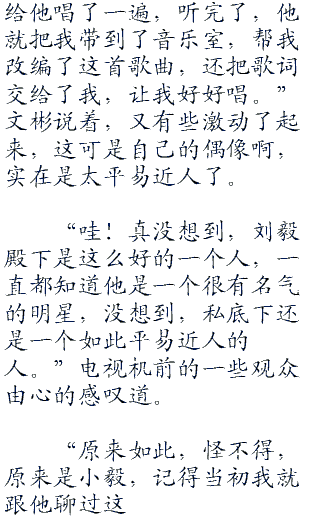 给他唱了一遍，听完了，他
就把我带到了音乐室，帮我
改编了这首歌曲，还把歌词
交给了我，让我好好唱。”
文彬说着，又有些激动了起
来，这可是自己的偶像啊，
实在是太平易近人了。
“哇！真没想到，刘毅
殿下是这么好的一个人，一
直都知道他是一个很有名气
的明星，没想到，私底下还
是一个如此平易近人的
人。”电视机前的一些观众
由心的感叹道。
“原来如此，怪不得，
原来是小毅，记得当初我就
跟他聊过这